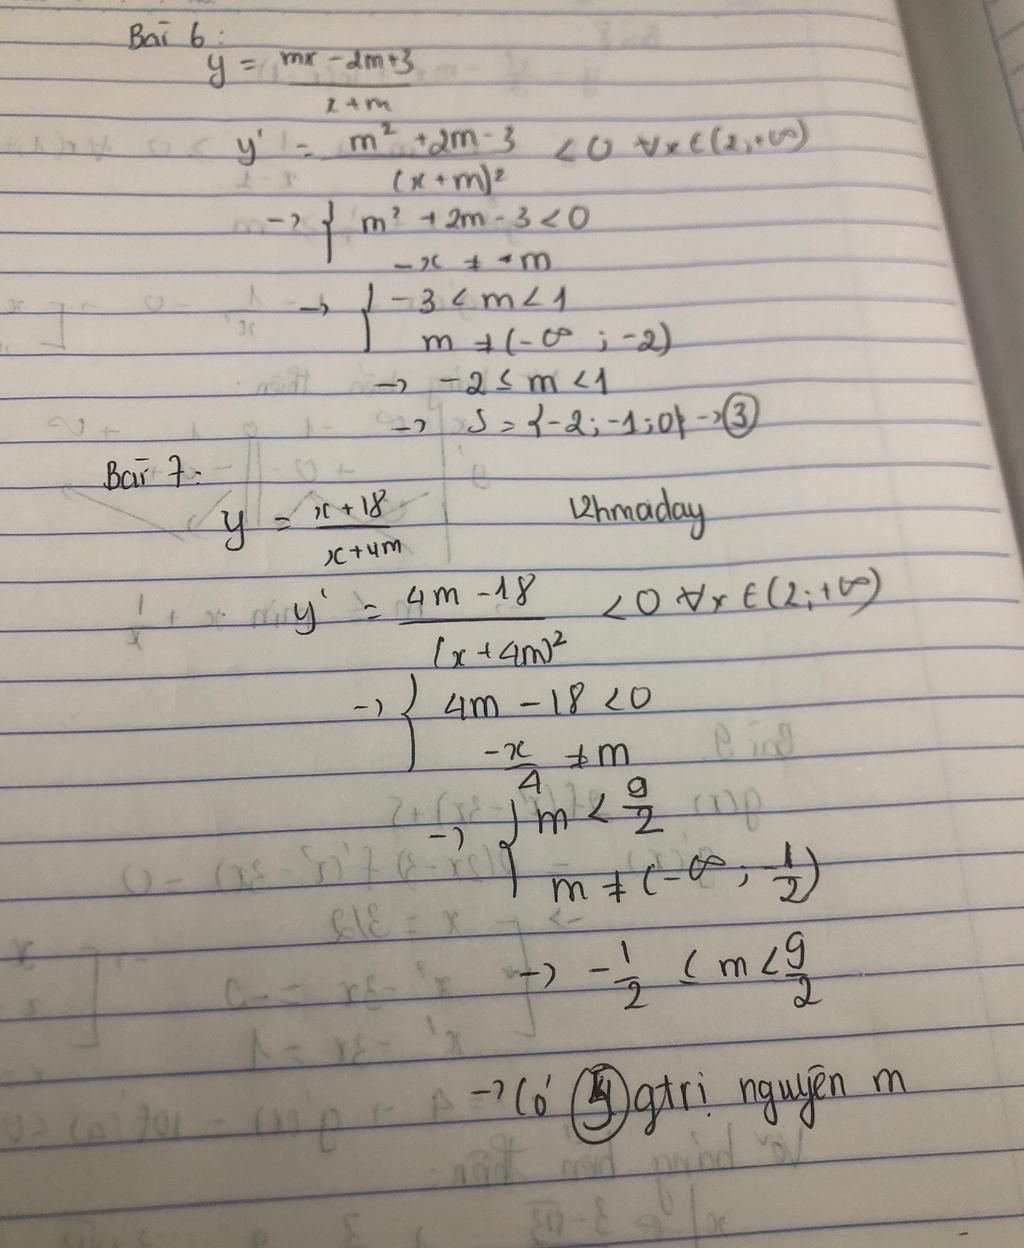 Bài 6:
y = \frac{mx - 2m + 3}{x + m}
y' = \frac{m² + 2m - 3}{(x + m)²} < 0 ∀x ∈ (2; +∞)
→ { m² + 2m - 3 < 0
-x ≠ m
→ { -3 < m < 1
m ≠ (-∞; -2)
→ -2 ≤ m < 1
→ S = {-2; -1; 0} → 3
Bài 7:
y = \frac{x + 18}{x + 4m}
12hmaday
y' = \frac{4m - 18}{(x + 4m)²} < 0 ∀x ∈ (2; +∞)
→ { 4m - 18 < 0
\frac{-x}{4} ≠ m
→ { m < \frac{9}{2}
m ≠ (-∞; -\frac{1}{2})
→ -\frac{1}{2} ≤ m < \frac{9}{2}
→ Có gtrị nguyên m